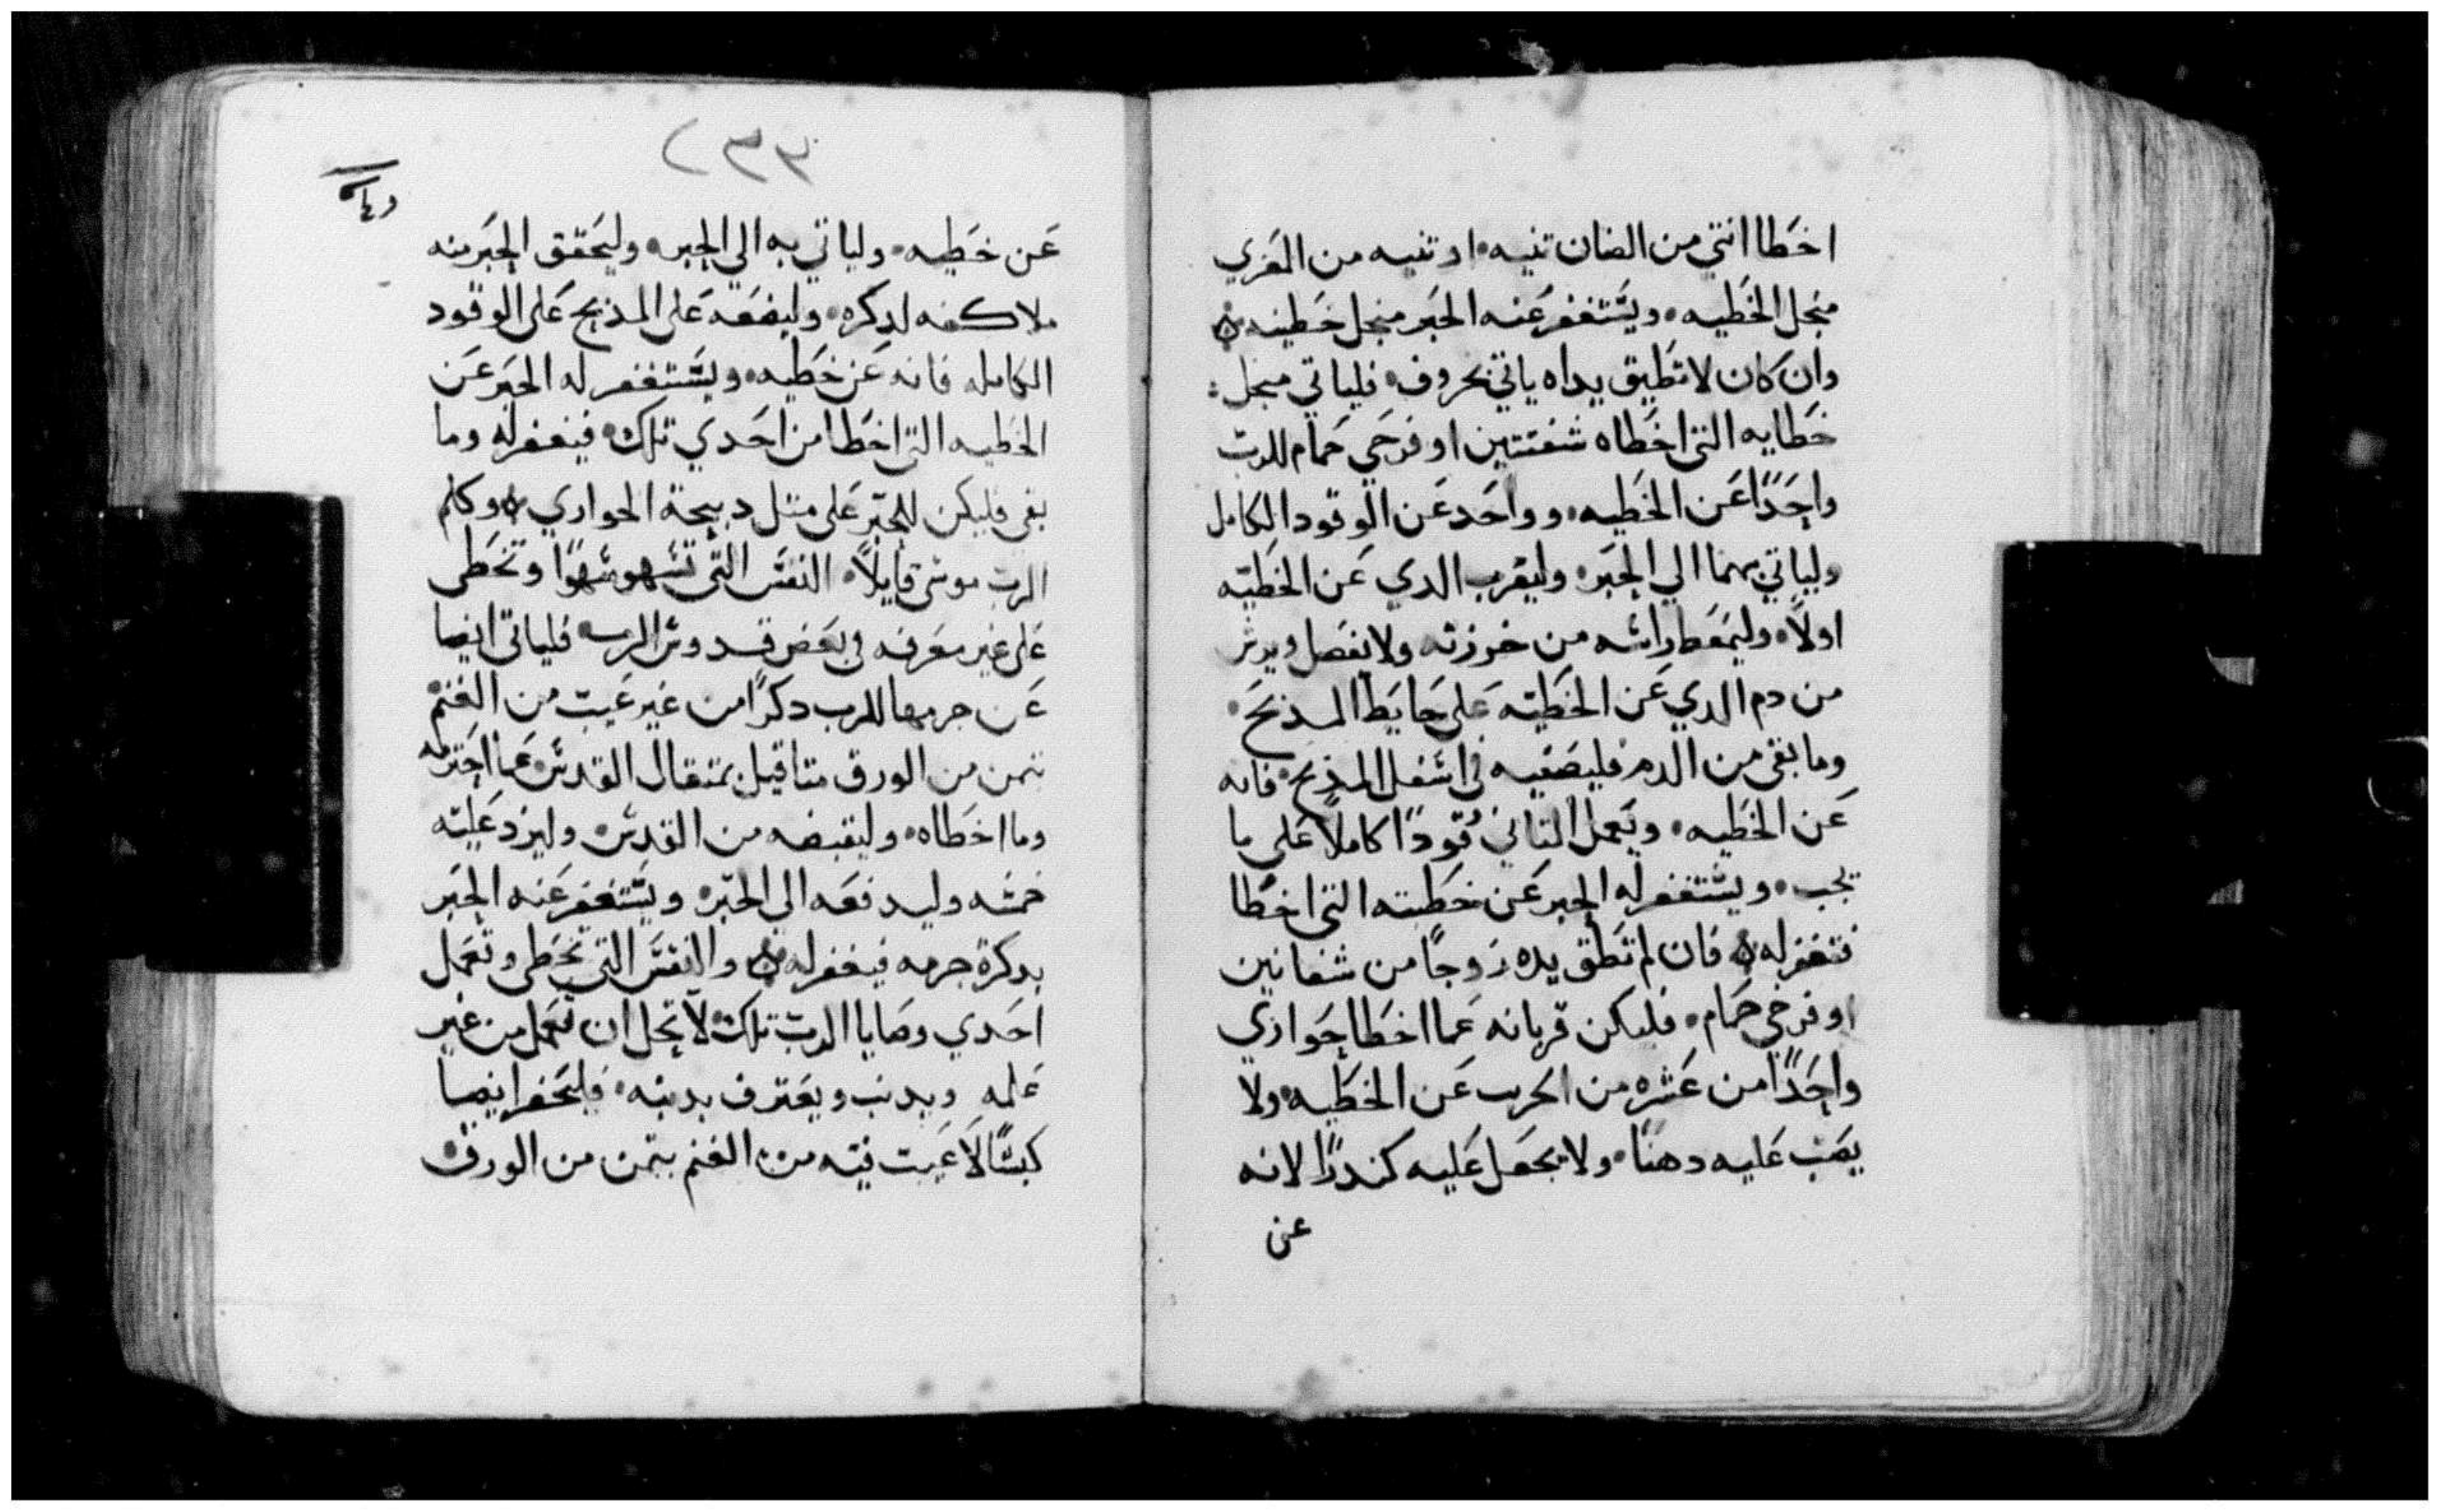 اخطا انتي من الضان تنيه، او تنيه من المعزي
منجل الخطيه، ويستغفر عنه الحبر منجل خطيته ن
وان كان لا تطيق يداه ياتي بخروف، فلياتي منجل
خطايه التي اخطاه شفنتين او فرخي حمام للرب
واحدًا عن الخطيه، وواحد عن الوقود الكامل
ولياتي بهما الي الحبر، وليقرب الدي عن الخطيه
اولاً، وليمعط راسه من خرزته ولا يفصل ويرش
من دم الدي عن الخطيه على حايط المدبح،
وما بقى من الدم فليصفيه في اسفل المدبح، فانه
عن الخطيه، ويعمل التاني وقودًا كاملاً على ما
يجب، ويستغفر له الحبر عن خطيته التي اخطا
فتغفر له ن فان لم تطق يده زوجًا من شفانين
او فرخي حمام، فليكن قربانه عما اخطا حواري
واحدًا من عشره من الجريب عن الخطيه، ولا
يصب عليه دهنًا، ولا يجعل عليه كندرًا لانه
عن
٢٣٣
عن خطيه، ولياتي به الي الحبر، وليحقق الحبر منه
ملا كفه لدكره، وليضعه على المدبح على الوقود
الكامله فانه عن خطيه، ويستغفر له الحبر عن
الخطيه التي اخطا من احدي تلك، فيغفر له وما
بقى فليكن للحبر على متل دبيحة الحواري ن وكلم
الرب موسى قايلاً، النفس التي تسهو سهوًا وتخطى
على غير معرفه في بعض قدوس الرب، فلياتي ايضا
عن جرمها للرب دكرًا من غير عيب من الغنم
بتمن من الورق متاقيل بمتقال القدس، عما اجترمه
وما اخطاه، وليقبضه من القدس، وليزد عليه
خمسه وليدفعه الي الحبر، ويستغفر عنه الحبر
بدكرة جرمه فيغفر له ن والنفس التي تخطى وتعمل
احدي وصايا الرب تلك، لا يحل ان تعمل من غير
علمه ويدنب ويعترف بدنبه، فليحضر ايضا
كبشًا لا عيب فيه من الغنم بتمن من الورق،